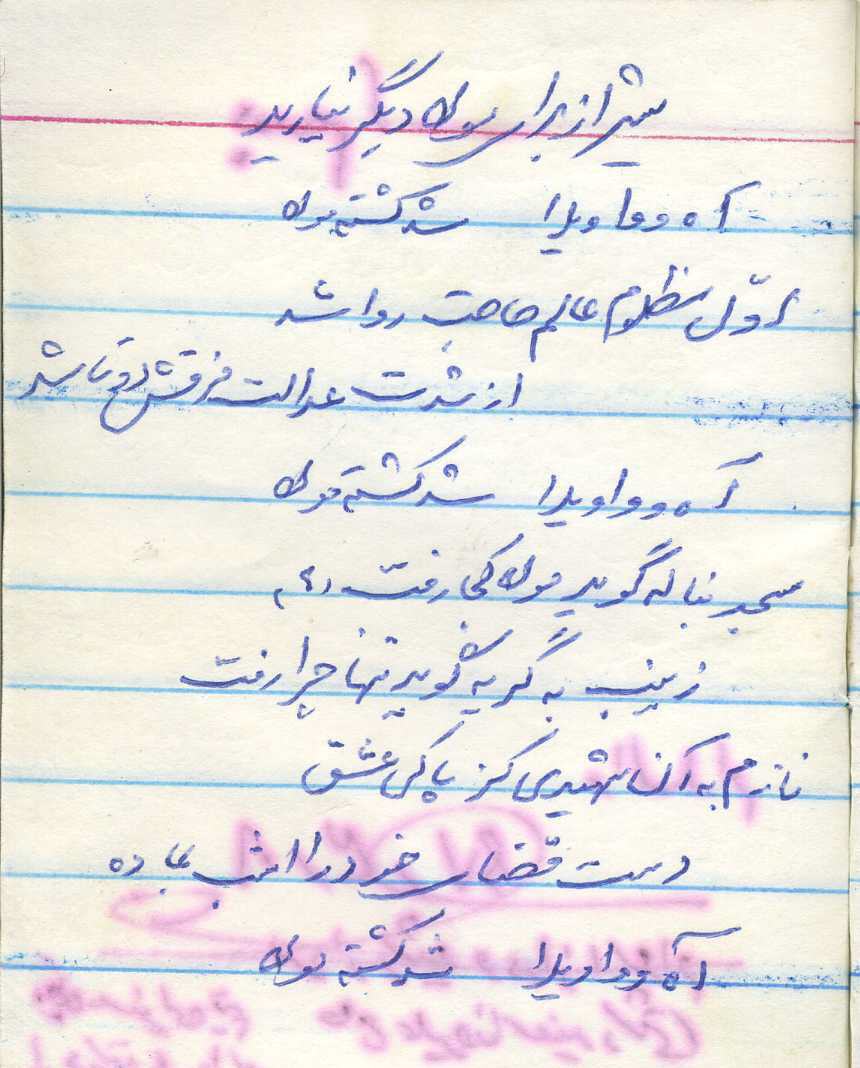 شیر از برای مولا دیگر نیارید
آه و وا ویلا شد کشته مولا
اول مظلوم عالم حاجت روا شد
از شدت عدالت فرقش دو تا شد
آه و واویلا شد کشته مولا
مسجد بناله گوید مولا کی رفت
زینب به گریه گوید تنها چرا رفت
نازم به آن شهیدی کز پاکی عشق
دست قضای خود را امشب
آه و واویلا شد کشته مولا